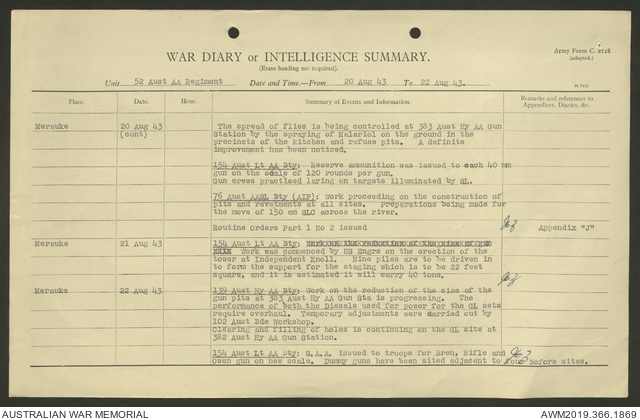 Army Form C. 2118
(adapted.)
WAR DIARY or INTELLIGENCE SUMMARY.
(Erase heading not required).
Unit 52 Aust AA Regiment Date and Time.—From 20 Aug 43 To 22 Aug 43.
Place. Date. Hour. Summary of Events and Information. Remarks and references to Appendices, Diaries, &c.
Merauke 20 Aug 43 The spread of flies is being controlled at 383 Aust Hy AA Gun
(cont) Station by the spraying of Malariol on the ground in the
precincts of the kitchen and refuse pits. A definite
improvement has been noticed.
154 Aust Lt AA Bty: Reserve ammunition was issued to each 40 mm
gun on the scale of 120 rounds per gun.
Gun crews practised laying on targets illuminated by SL.
76 Aust AASL Bty (AIF): Work proceeding on the construction of
pits and revetments at all sites. Preparations being made for
the move of 150 cm SLC across the river.
Routine Orders Part 1 No 2 issued Appendix "J"
Merauke 21 Aug 43 154 Aust Lt AA Bty:
Work was commenced by US Engrs on the erection of the
tower at Independent Knoll. Nine piles are to be driven in
to form the support for the staging which is to be 22 feet
square, and it is estimated it will carry 40 tons.
Merauke 22 Aug 43 139 Aust Hy AA Bty: Work on the reduction of the size of the
gun pits at 383 Aust Hy AA Gun Sta is progressing. The
performance of both the Diesels used for power for the GL sets
require overhaul. Temporary adjustments were carried out by
102 Aust Bde Workshop.
Clearing and filling of holes is continuing on the GL site at
382 Aust Hy AA Gun Station.
154 Aust Lt AA Bty: S.A.A. issued to troops for Bren, Rifle and
Owen gun on new scale. Dummy guns have been sited adjacent to four Bofors sites.
AUSTRALIAN WAR MEMORIAL AWM2019.366.1869